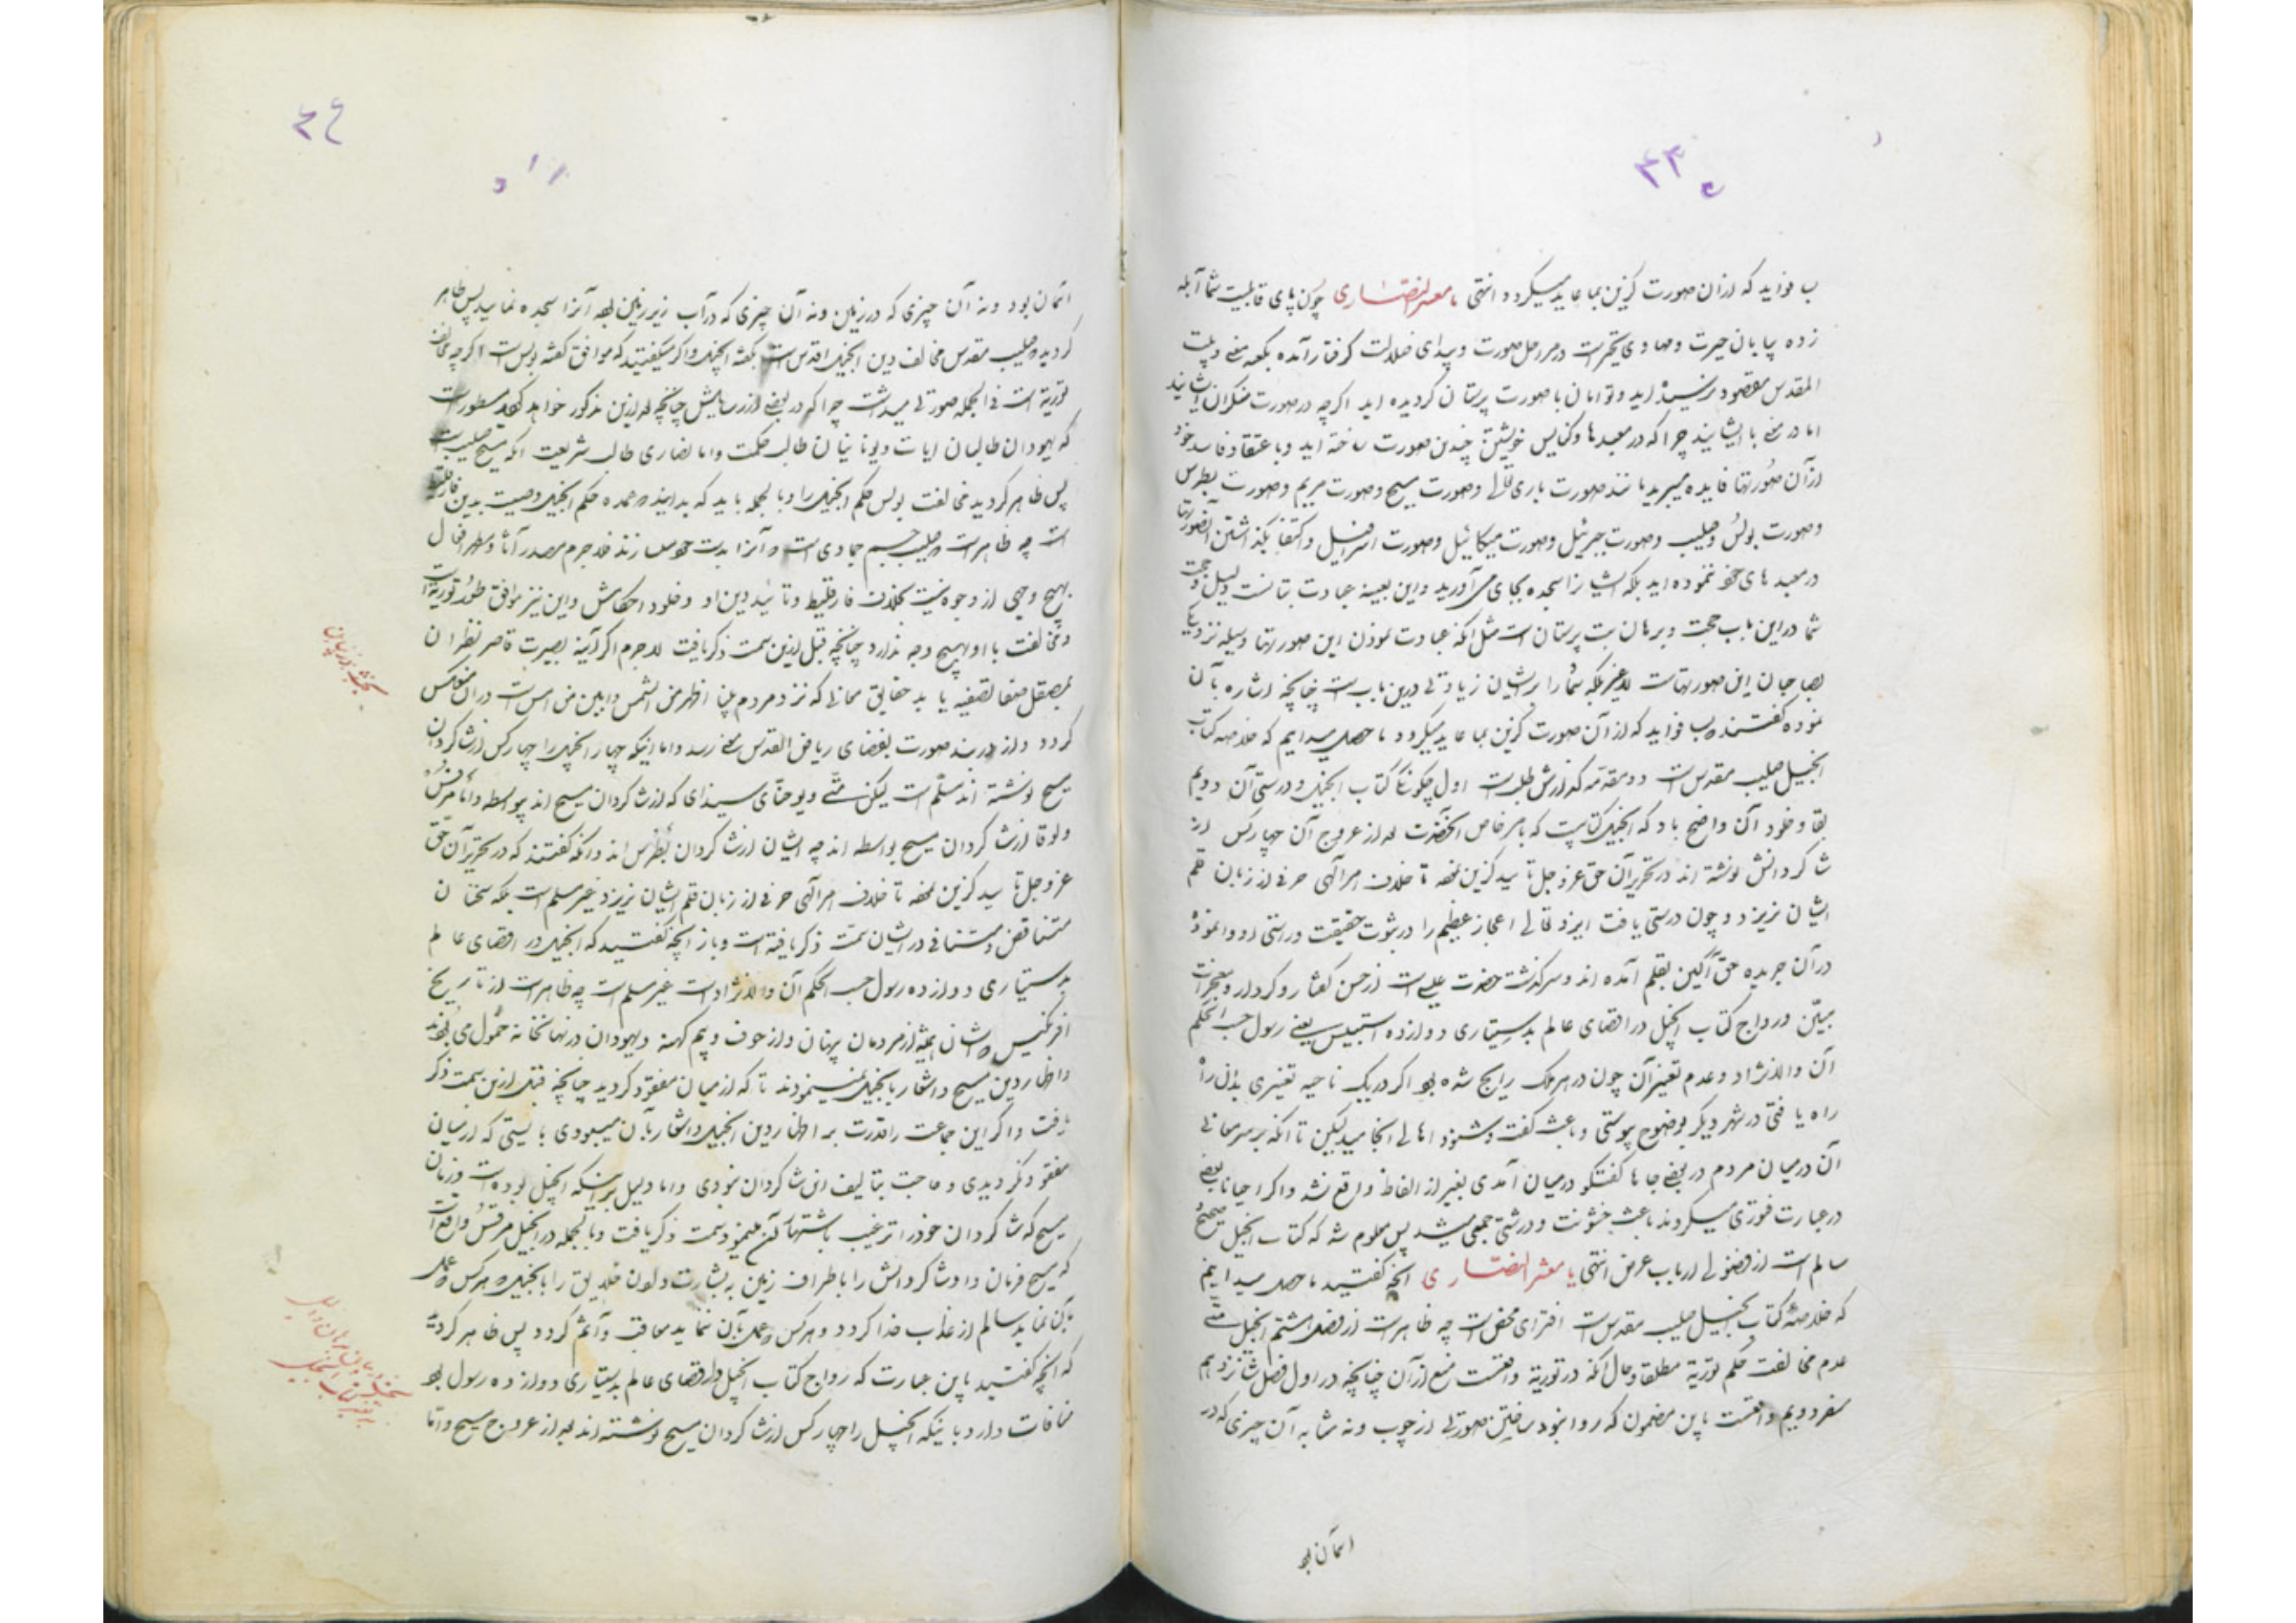 ۴۳
ب فواید که از آن صورت گزین بما عاید میگردد انتهی یا معشر النصاری چون پای قابلیت شما آبله
زده بیابان حیرت و مهاوی تحیر است در مرحل صورت و بیدای ضلالت گرفتار آمده بکعبه معنی و بیت
المقدس مقصود نرسیده اید و توامان با صورت پرستان گردیده اید اگرچه در صورت منکران ایشانید
اما در معنی با ایشانید چرا که در معبدها و کنایس خویشتن چندین صورت ساخته اید و باعتقاد فاسد خود
از آن صورتها فایده میبرید مانند صورت باری تعالی و صورت مسیح و صورت مریم و صورت پطرس
و صورت بولس و صلیب و صورت جبرئیل و صورت میکائیل و صورت اسرافیل و اکتفا بگذاشتن آنصورتها
در معبدهای خود ننموده اید بلکه ایشانرا سجده بجای می آورید و این بعینه عبادت بتانست و دلیل و حجت
شما در این باب حجت و برهان بت پرستان است مثل آنکه عبادت نمودن این صورتها وسیله نزدیکی
بصاحبان این صورتهاست لاغیر بلکه شما را بر ایشان زیادتی درین باب است چنانچه اشاره بآن
نموده گفتند بسا فواید که از آن صورت گزین بما عاید میگردد ما حصل میدانیم که خلاصه کتاب
انجیل صلیب مقدس است دو مقدمه که نگارش طلب است اول چگونگی کتاب انجیل و درستی آن دویم
بقا و خلود آن واضح باد که انجیل کتابیست که بامر خاص آنحضرت بعد از عروج آن چهار کس از
شاگردانش نوشته اند در تحریر آن حق عز و جل تایید گزین بوده تا خلاف امر آلهی حرفی از زبان قلم
ایشان نریزد و چون درستی یافت ایزد تعالی اعجاز عظیم را در ثبوت حقیقت و راستی او وانموده
در آن جریده حق آگین بقلم آمده اند و سرگذشت حضرت عیسی است از حسن گفتار و کردار و معجزات
مبین و رواج کتاب انجیل در اقصای عالم بدستیاری دوازده استبیس یعنی رسول حسب الحکم
آن والانژاد و عدم تغیر آن چون در هر ملک رایج شده بود اگر در یک ناحیه تغییری بدان راه
راه یافتی در شهر دیگر بوضوح پیوستی و باعث گفت و شنود اهالی انجامید لیکن تا آنکه بر سر معانی
آن در میان مردم در بعضی جاها گفتگو در میان آمدی بغیر از الفاظ واقع نشد و اگر احیانا بعضی
در عبارت فتوری میکردند باعث خشونت و درشتی جمعی میشد پس معلوم شد که کتاب انجیل صحیح
سالم است از فضولی ارباب عرض انتهی یا معشر النصاری آنچه گفتید ما حصل میدانیم
که خلاصه کتاب انجیل صلیب مقدس است افترای محض است چه ظاهر است از فصل هشتم انجیل متی
عدم مخالفت حکم توریة مطلقا و حال آنکه در توریة واقعست منع از آن چنانچه در اول فصل شانزدهم
سفر دویم واقعست باین مضمون که روا نبود ساختن صورتی از چوب و نه شابه آن چیزی که در
اسمان بود
۴۴
اسمان بود و نه آن چیزی که در زمین و نه آن چیزی که در آب زیر زمین بود آنرا سجده نمایید پس ظاهر
گردید صلیب مقدس مخالف دین انجیل اقدس است بگفته انجیل و اگر میگفتید که موافق گفته بولس است اگرچه مخالف
توریة است فی الجمله صورتی میداشت چرا که در بعضی از رسایلش چنانچه بعد ازین مذکور خواهد گردید مسطور است
که یهودان طالبان ایات و یونانیان طالب حکمت و اما نصاری طالب شریعت آنکه مسیح صلیب است
پس ظاهر گردید مخالفت بولس حکم انجیل را و بالجمله باید که بدانید عمده حکم انجیل وصیت بدین فارقلیط
است چه ظاهر است صلیب جسم جمادی است و آنرا بدست خود سازند فلاجرم مصدر آثار و مظهر افعال
بهیچ وجهی از وجوه نیست بخلاف فارقلیط و تائید دین او و خلود احکامش و این نیز موافق طور توریة است
و مخالفت با او بهیچ وجه ندارد چنانچه قبل ازین سمت ذکر یافت لاجرم اگر آینه بصیرت قاصر نظران
بمصقل صفا تصفیه یابد حقایق معانی که نزد مردم بینا اظهر من الشمس و ابین من امس است در آن منعکس
گردد و از در بند صورت بفضای ریاض القدس معنی رسد و اما اینکه چهار انجیل را چهار کس از شاگردان
مسیح نوشته اند مسلم است لیکن متی و یوحنای سیدای که از شاگردان مسیح اند بیواسطه و اما مرقس
و لوقا از شاگردان مسیح بواسطه اند چه ایشان از شاگردان بطرس اند و آنکه گفتند که در تحریر آن حق
عز و جل تایید گزین بوده تا خلاف امر آلهی حرفی از زبان قلم ایشان نریزد غیر مسلم است بلکه سخنان
متناقض و متنافی در ایشان سمت ذکر یافته است و باز آنچه گفتید که انجیل در اقصای عالم
بدستیاری دوازده رسول حسب الحکم آن والانژاد است غیر مسلم است چه ظاهر است از تاریخ
افرنکیس که ایشان همیشه از مردمان پنهان و از خوف و بیم کهنه و یهودان در نهانخانه خمول می بودند
و اظهار دین مسیح و اشعار بانجیل نمینمودند تا که از میان مفقود گردید چنانچه قبل ازین سمت ذکر
یافت و اگر این جماعت را قدرت بر اظهار دین انجیل و اشعار بآن میبودی بایستی که از میان
مفقود نگردیدی و حاجت بتالیف این شاگردان نبودی و اما دلیل بر اینکه انجیل بوده است در زمان
مسیح که شاگردان خود را ترغیب باشتهار آن مینمود سمت ذکر یافت و بالجمله در انجیل مرقس واقع است
که مسیح فرمان داد شاگردانش را باطراف زمین به بشارت دادن خلایق را بانجیل و هر کس عمل
بآن نماید سالم از عذاب خدا گردد و هر کس عمل بآن ننماید معاقب و آثم گردد پس ظاهر گردید
که آنچه گفتید باین عبارت که رواج کتاب انجیل در اقصای عالم بدستیاری دوازده رسول بود
منافات دارد با اینکه انجیل را چهار کس از شاگردان مسیح نوشته اند بعد از عروج مسیح و اما